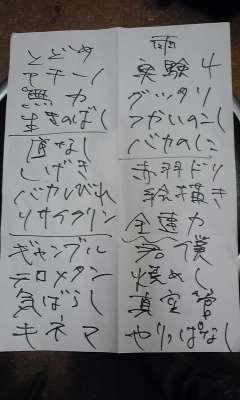 とどめ
マキーノ
無力
生きのばし
道なし
しげき
バカしびれ
リサイクリン
ギャンブル
テロメタン
気ばらし
キネマ
雨
実験4
グッタリ
つかいのこし
バカのしに
赤羽ドリ
絵描き
全速力
君僕
焼めし
真空管
やりっぱなし